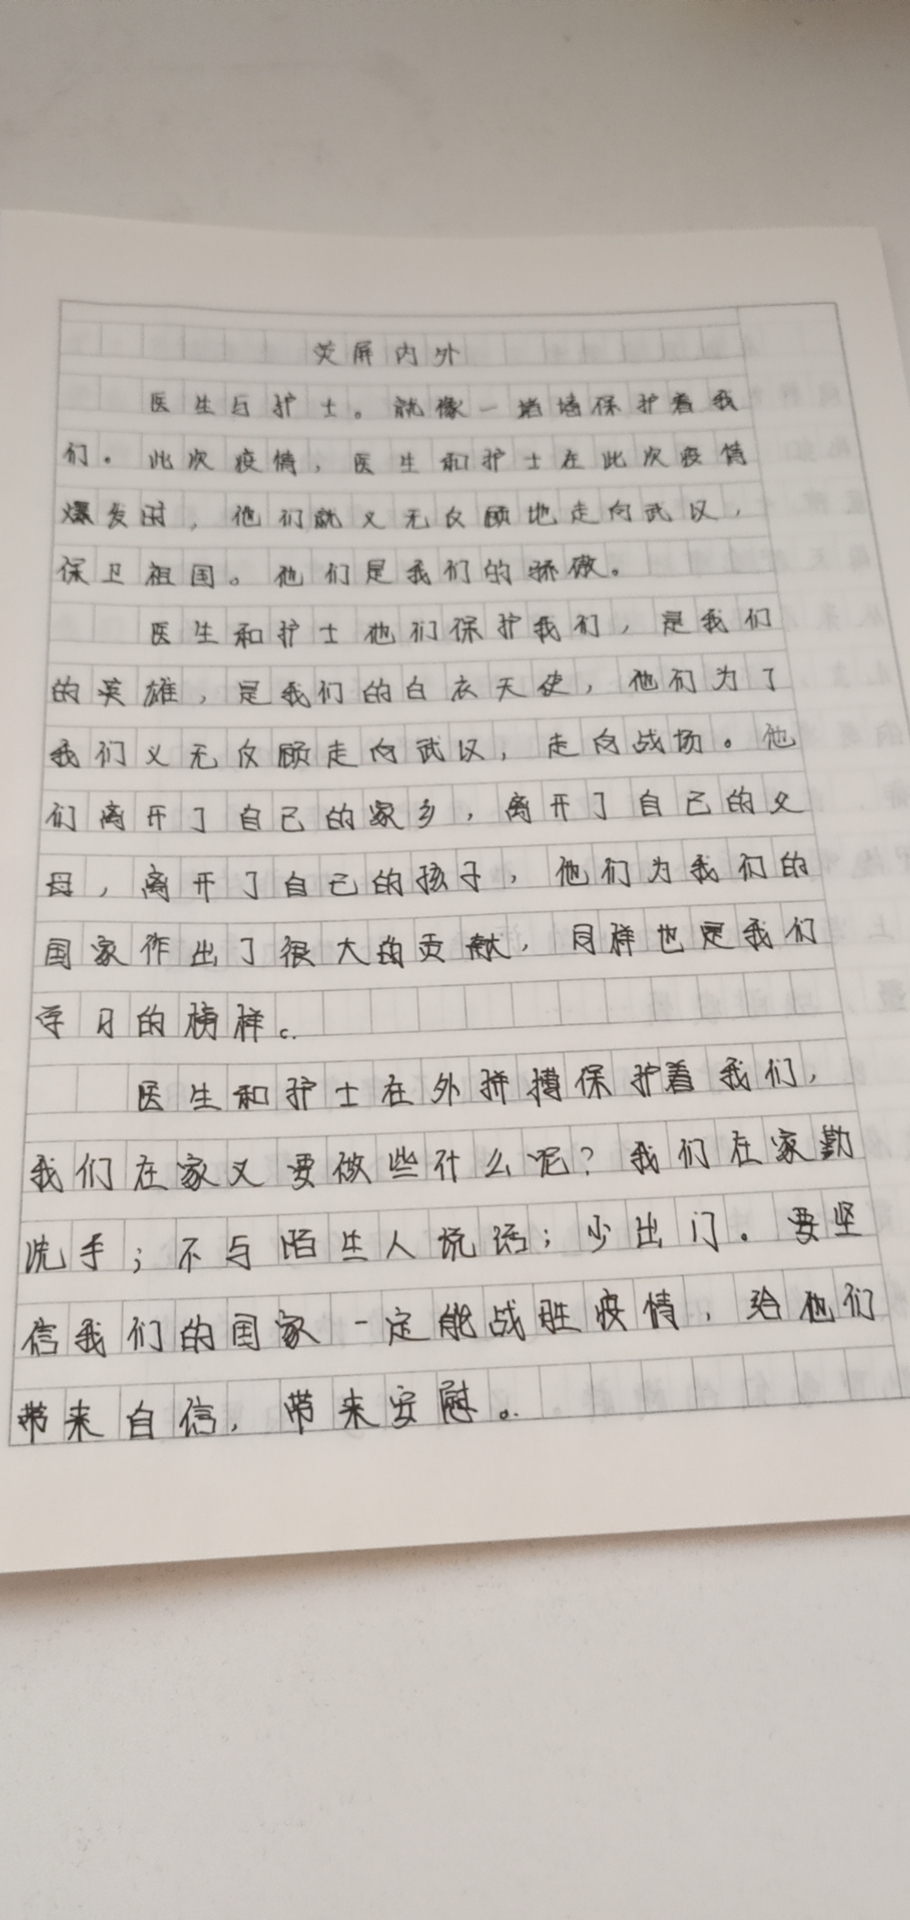 荧屏内外
医生与护士。就像一堵墙保护着我
们。此次疫情，医生和护士在此次疫情
爆发时，他们就义无反顾地走向武汉，
保卫祖国。他们是我们的骄傲。
医生和护士他们保护我们，是我们
的英雄，是我们的白衣天使，他们为了
我们义无反顾走向武汉，走向战场。他
们离开了自己的家乡，离开了自己的父
母，离开了自己的孩子，他们为我们的
国家作出了很大的贡献，同样也是我们
学习的榜样。
医生和护士在外拼搏保护着我们，
我们在家又要做些什么呢？我们在家勤
洗手；不与陌生人说话；少出门。要坚
信我们的国家一定能战胜疫情，给他们
带来自信，带来安慰。